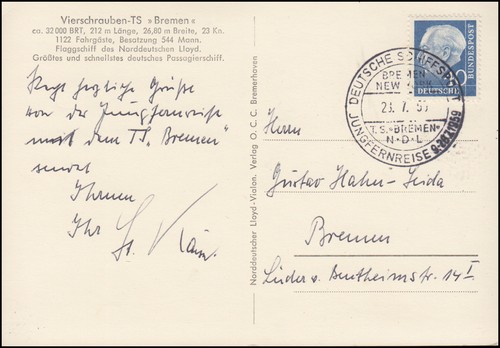 Vierschrauben-TS »Bremen«
ca. 32 000 BRT, 212 m Länge, 26,80 m Breite, 23 Kn.
1122 Fahrgäste, Besatzung 544 Mann.
Flaggschiff des Norddeutschen Lloyd.
Größtes und schnellstes deutsches Passagierschiff.
Recht herzliche Grüße
von der Jungfernreise
mit dem TS. Bremen"
sendet
Ihnen
Ihr
Norddeutscher Lloyd-Vialon. Verlag O. C. C. Bremerhaven
DEUTSCHE BUNDESPOST
DEUTSCHE SCHIFFSPOST
BREMEN
NEW YORK
23. 7. 59
T.S. «BREMEN»
N·D·L
JUNGFERNREISE
Herrn
Gustav Hahn-Seida
Bremen
Lüder v. Bentheimstr. 14 I